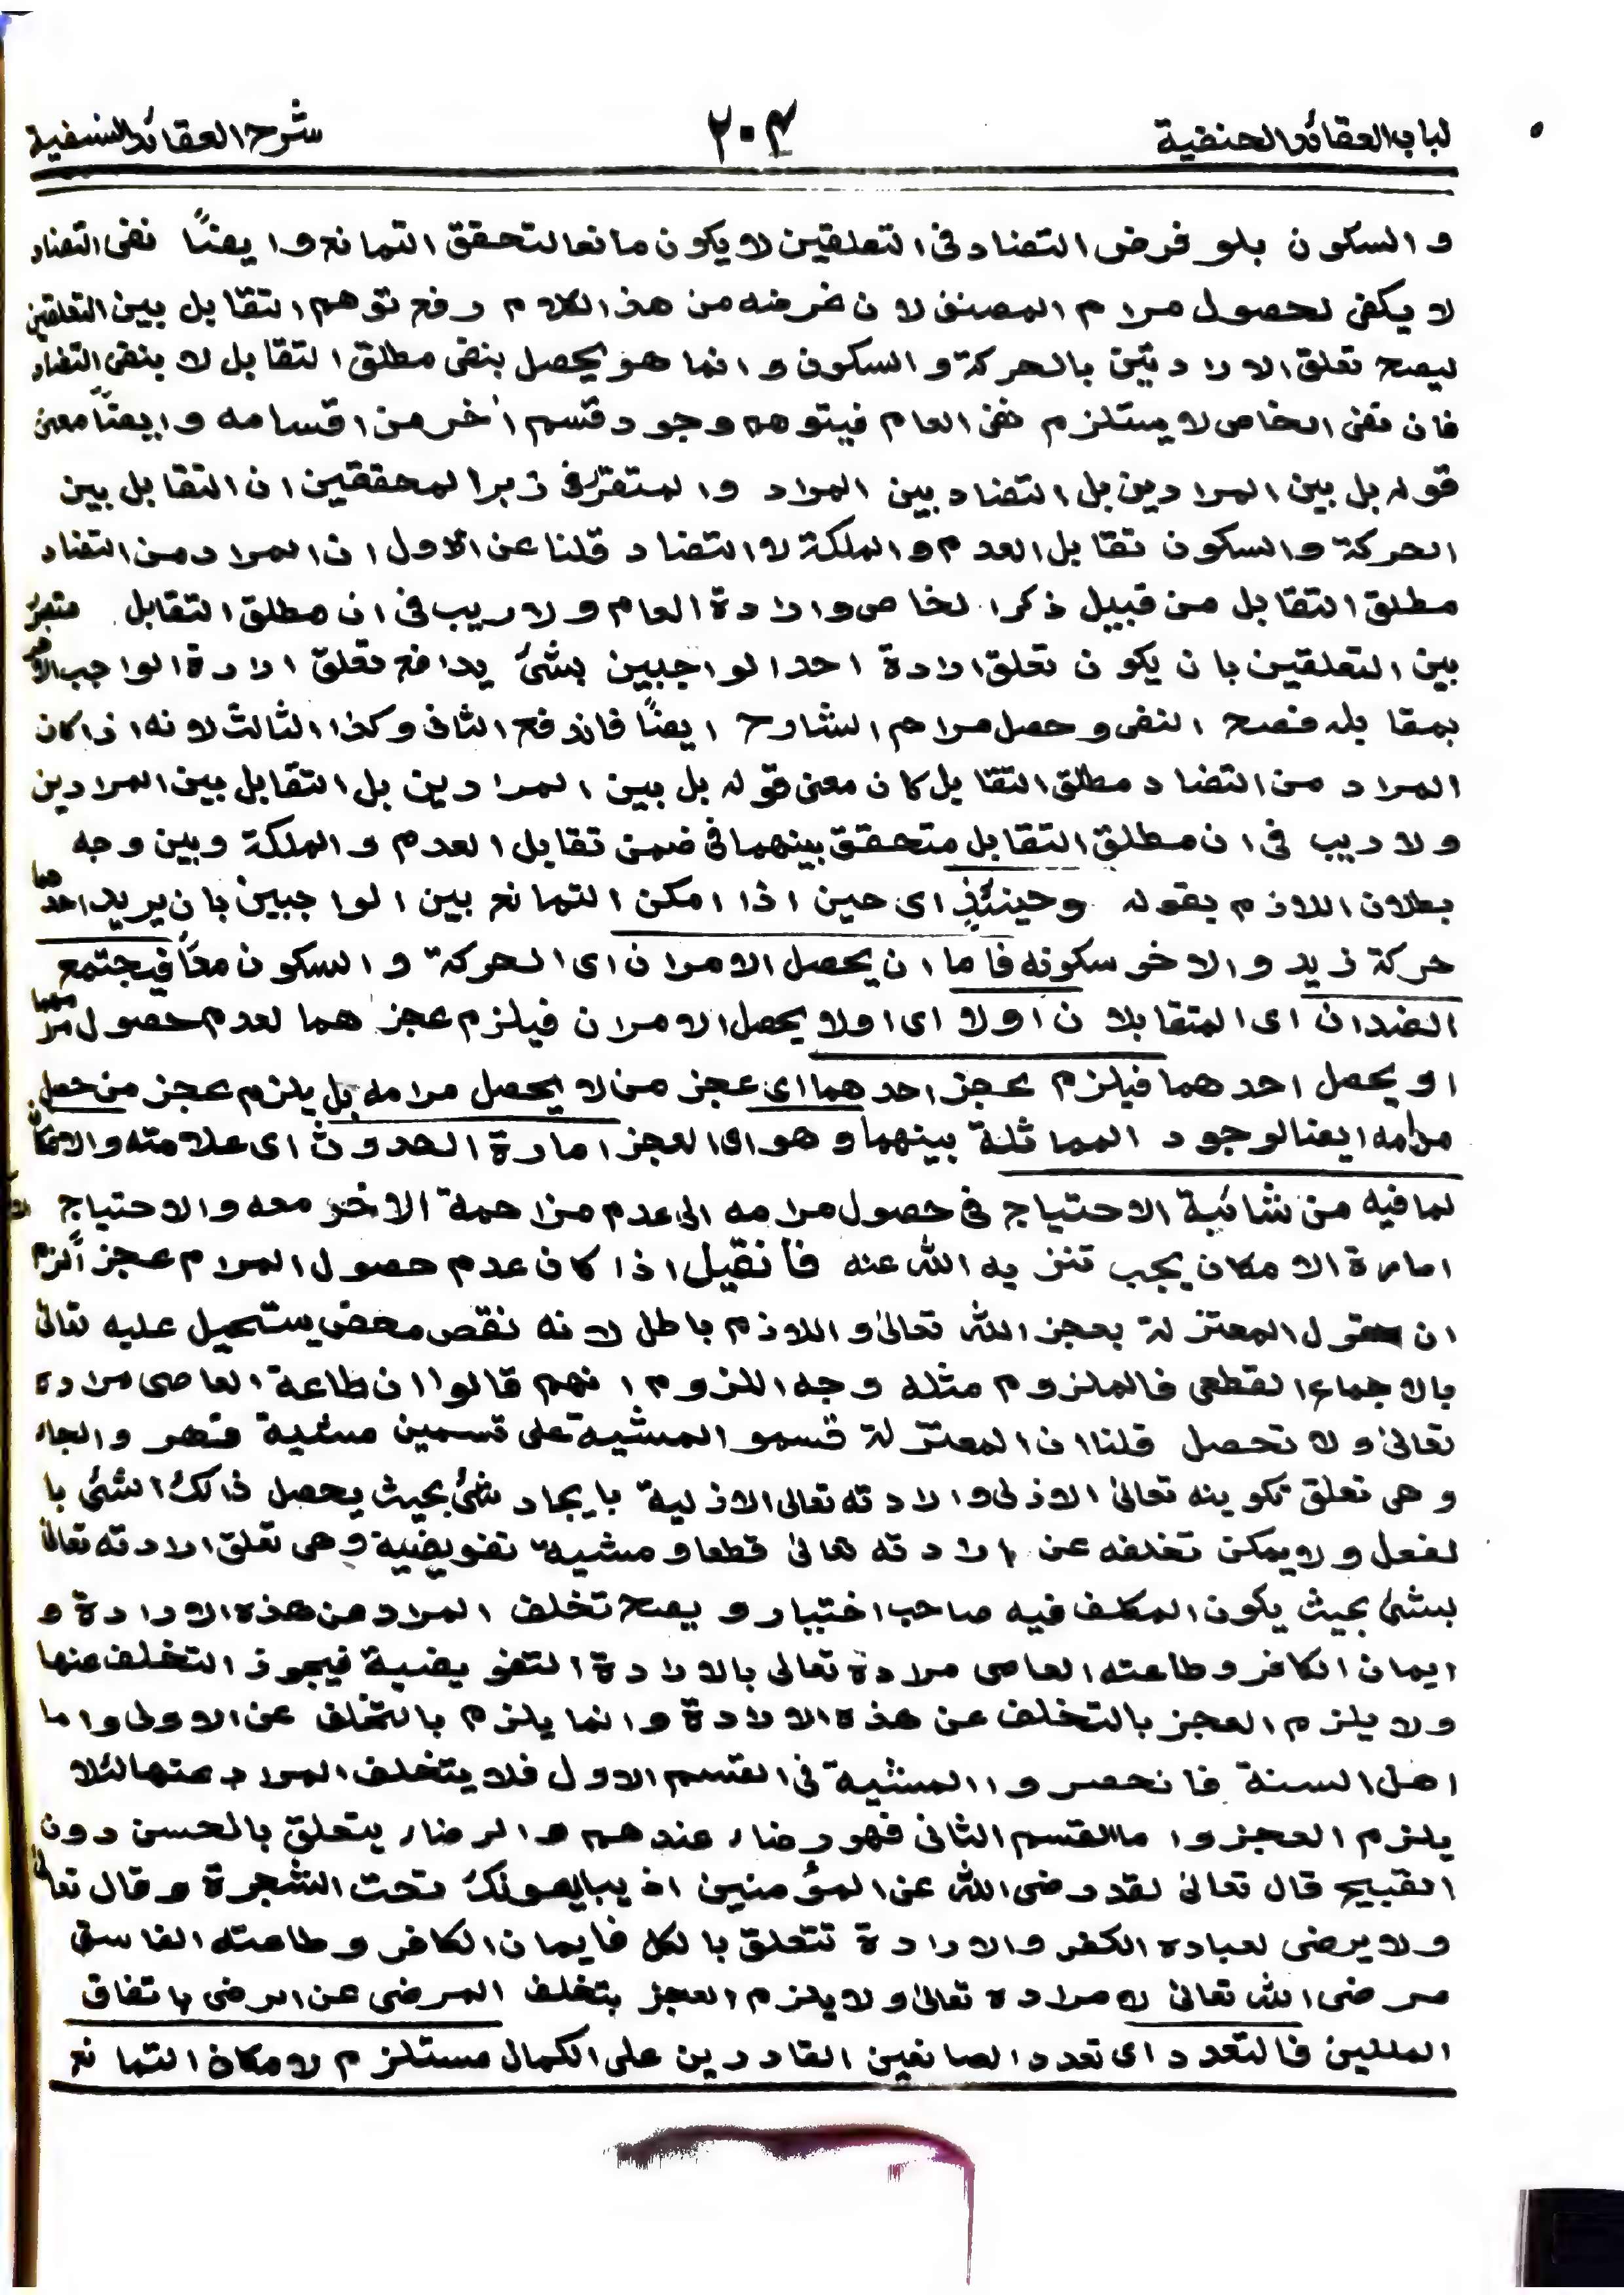 لباب العقائد الحنفية ٢٠٤ شرح العقائد النسفية
و السكون بلو فرض التضاد فى التعلقين لا يكون مانعا لتحقق التمانع و ايضًا نفى التضاد
لا يكفى لحصول مرام المصنف لان غرضه من هذا الكلام رفع توهم التقابل بين التعلقين
ليصح تعلق الارادتين بالحركة و السكون و انما هو يحصل بنفى مطلق التقابل لا بنفى التضاد
فان نفى الخاص لا يستلزم نفى العام فيتوهم وجود قسم أخر من اقسامه و ايضًا معنى
قوله بل بين المرادين بل التضاد بين المراد و المتقرّر فى زبر المحققين ان التقابل بين
الحركة و السكون تقابل العدم و الملكة لا التضاد قلنا عن الاول ان المراد من التضاد
مطلق التقابل من قبيل ذكر الخاص و ارادة العام و لا ريب فى ان مطلق التقابل
بين التعلقين بان يكون تعلق ارادة احد الواجبين بشئ يدافع تعلق ارادة الواجب الآخر
بمقابله فصح النفى و حصل مرام الشارح ايضًا فاندفع الثانى و كذا الثالث لانه اذا كان
المراد من التضاد مطلق التقابل كان معنى قوله بل بين المرادين بل التقابل بين المرادين
و لا ريب فى ان مطلق التقابل متحقق بينهما فى ضمن تقابل العدم و الملكة و بين وجه
بطلان اللازم بقوله وحينئذٍ اى حين اذا امكن التمانع بين الواجبين بان يريد احدهما
حركة زيد و الاخر سكونه فاما ان يحصل الامران اى الحركة و السكون معًا فيجتمع
الضدان اى المتقابلان او لا اى اولا يحصل الامران فيلزم عجزهما لعدم حصول مرامهما
او يحصل احدهما فيلزم عجز احدهما اى عجز من لا يحصل مرامه بل يلزم عجز من حصل
مرامه ايضا لوجود المماثلة بينهما و هو اى العجز امارة الحدوث اى علامته و الامكان
لما فيه من شائبة الاحتياج فى حصول مرامه الى عدم مزاحمة الاخر معه و الاحتياج
امارة الامكان يجب تنزيه الله عنه فان قيل اذا كان عدم حصول المرام عجزًا لزم
ان قول المعتزلة بعجز الله تعالىٰ و اللازم باطل لانه نقص محض يستحيل عليه تعالىٰ
بالاجماع القطعى فالملزوم مثله وجه اللزوم انهم قالوا ان طاعة العاصى مرادة
تعالىٰ و لا تحصل قلنا ان المعتزلة قسمو المشية على قسمين مشية قهر و الجاء
و هى تعلق تكوينه تعالىٰ الازلى و ارادته تعالى الازلية بايجاد شئ بحيث يحصل ذالك الشئ با
لفعل و لا يمكن تخلفه عن ارادته تعالىٰ قطعا و مشية تفويضية و هى تعلق ارادته تعالىٰ
بشئ بحيث يكون المكلف فيه صاحب اختيار و يصح تخلف المراد عن هذه الارادة و
ايمان الكافر و طاعته العاصى مرادة تعالى بالارادة التفويضية فيجوز التخلف عنها
و لا يلزم العجز بالتخلف عن هذه الارادة و انما يلزم بالتخلف عن الاولى و اما
اهل السنة فانحصروا المشية فى القسم الاول فلا يتخلف المراد عنها لئلا
يلزم العجز و اما القسم الثانى فهو رضاء عندهم و الرضاء يتعلق بالحسن دون
القبيح قال تعالىٰ لقد رضى الله عن المؤمنين اذ يبايعونك تحت الشجرة و قال تعالىٰ
و لا يرضى لعباده الكفر و الارادة تتعلق بالكل فايمان الكافر و طاعته الفاسق
مرضى الله تعالىٰ لا مرادة تعالىٰ و لا يلزم العجز بتخلف المرضى عن الرضى باتفاق
المليين فالتعدد اى تعدد الصانعين القادرين على الكمال مستلزم لامكان التمانع